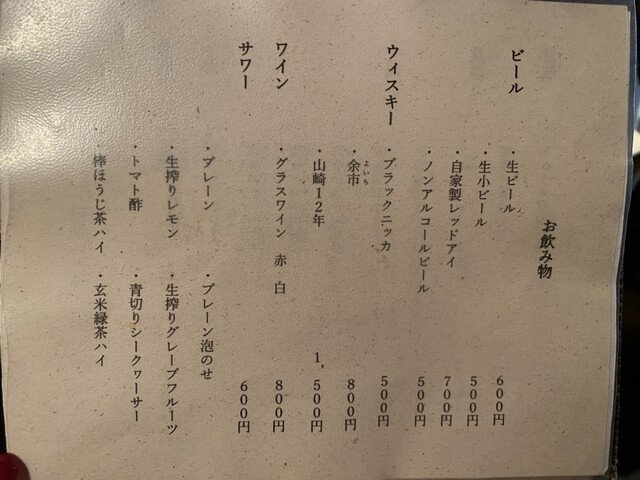 お飲み物
ビール
・生ビール 600円
・生小ビール 500円
・自家製レッドアイ 700円
・ノンアルコールビール 500円
ウィスキー
・ブラックニッカ 500円
・余市 800円
よいち
・山崎12年 1,500円
ワイン
・グラスワイン 赤 白 800円
サワー 600円
・プレーン ・プレーン泡のせ
・生搾りレモン ・生搾りグレープフルーツ
・トマト酢 ・青切りシークヮーサー
・棒ほうじ茶ハイ ・玄米緑茶ハイ